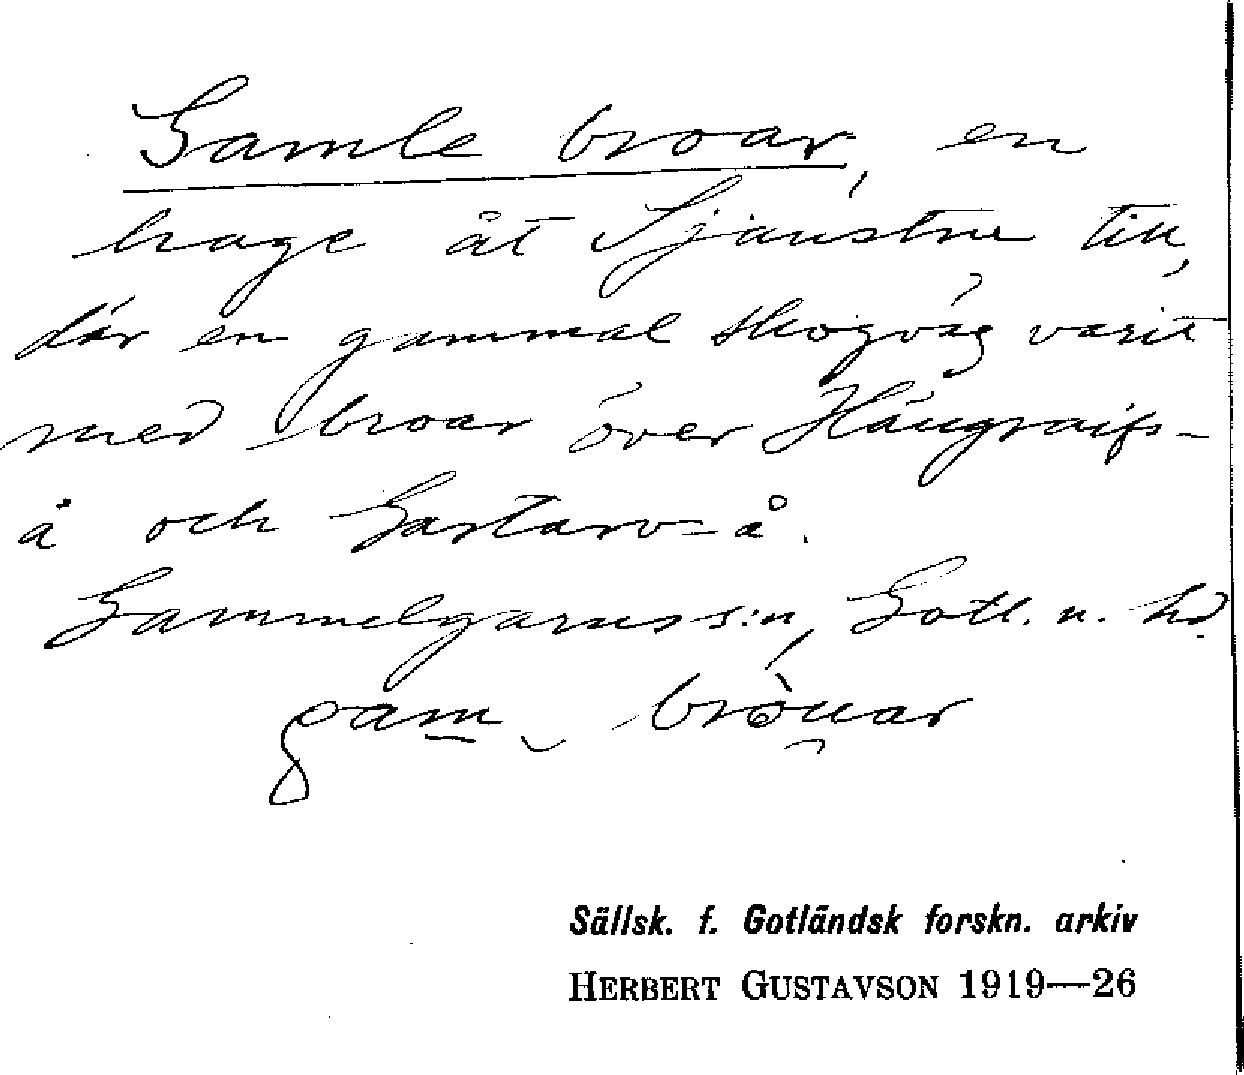 Gamle broar, en
hage åt Sjaustru till,
där en gammal skogväg varit
med broar över Hängraifs-
å och Gartarv-å.
Gammelgarns s:n, Gotl. n. hd
gam brouar
Sällsk. f. Gotländsk forskn. arkiv
HERBERT GUSTAVSON 1919—26